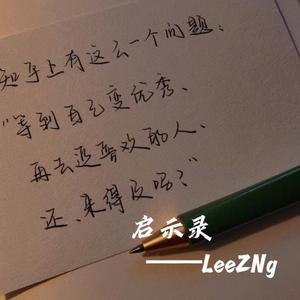 知乎上有这么一个问题:
"等到自己变优秀、
再去追喜欢的人、
还、来得及吗?"
启示录
——LeeZNg